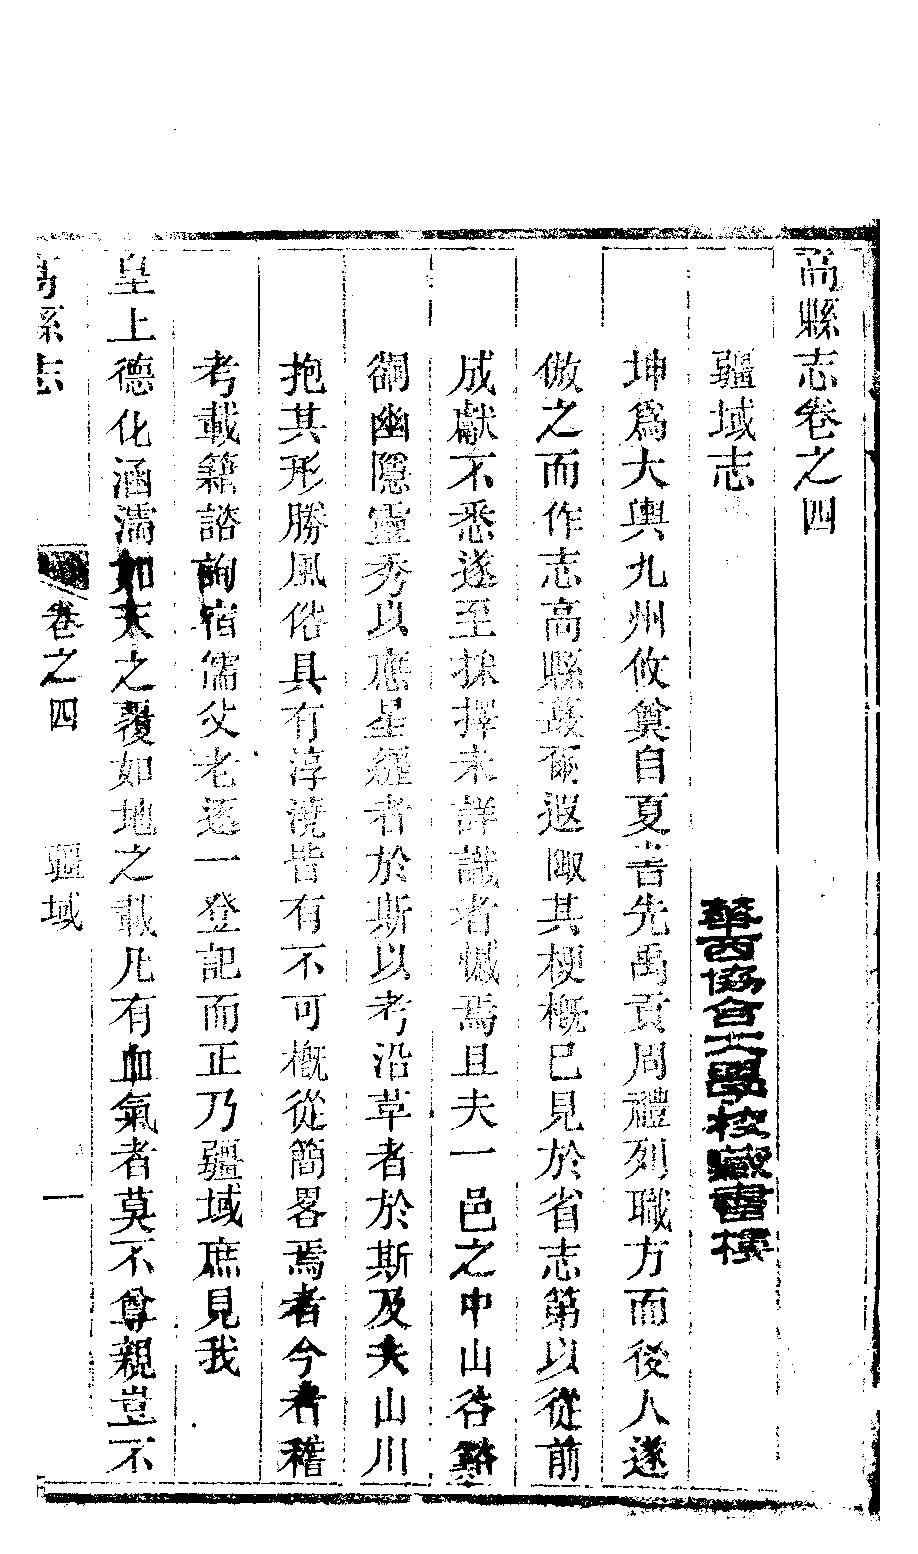 高縣志卷之四
疆域志
華西協合大學校藏書樓
坤爲大輿九州攸奠自夏書先禹貢周禮列職方而後人遂
倣之而作志高縣蕞爾遐陬其梗槪已見於省志第以從前
成獻不悉遂至採擇未詳識者憾焉且夫一邑之中山谷谿
嗣幽隱靈秀以應星纒者於斯以考沿革者於斯及夫山川
抱其形勝風俗具有淳澆皆有不可槪從簡畧焉者今者稽
考載籍諮詢宿儒父老逐一登記而正乃疆域庶見我
皇上德化涵濡如天之覆如地之載凡有血氣者莫不尊親豈不
高縣志 卷之四 疆域 一